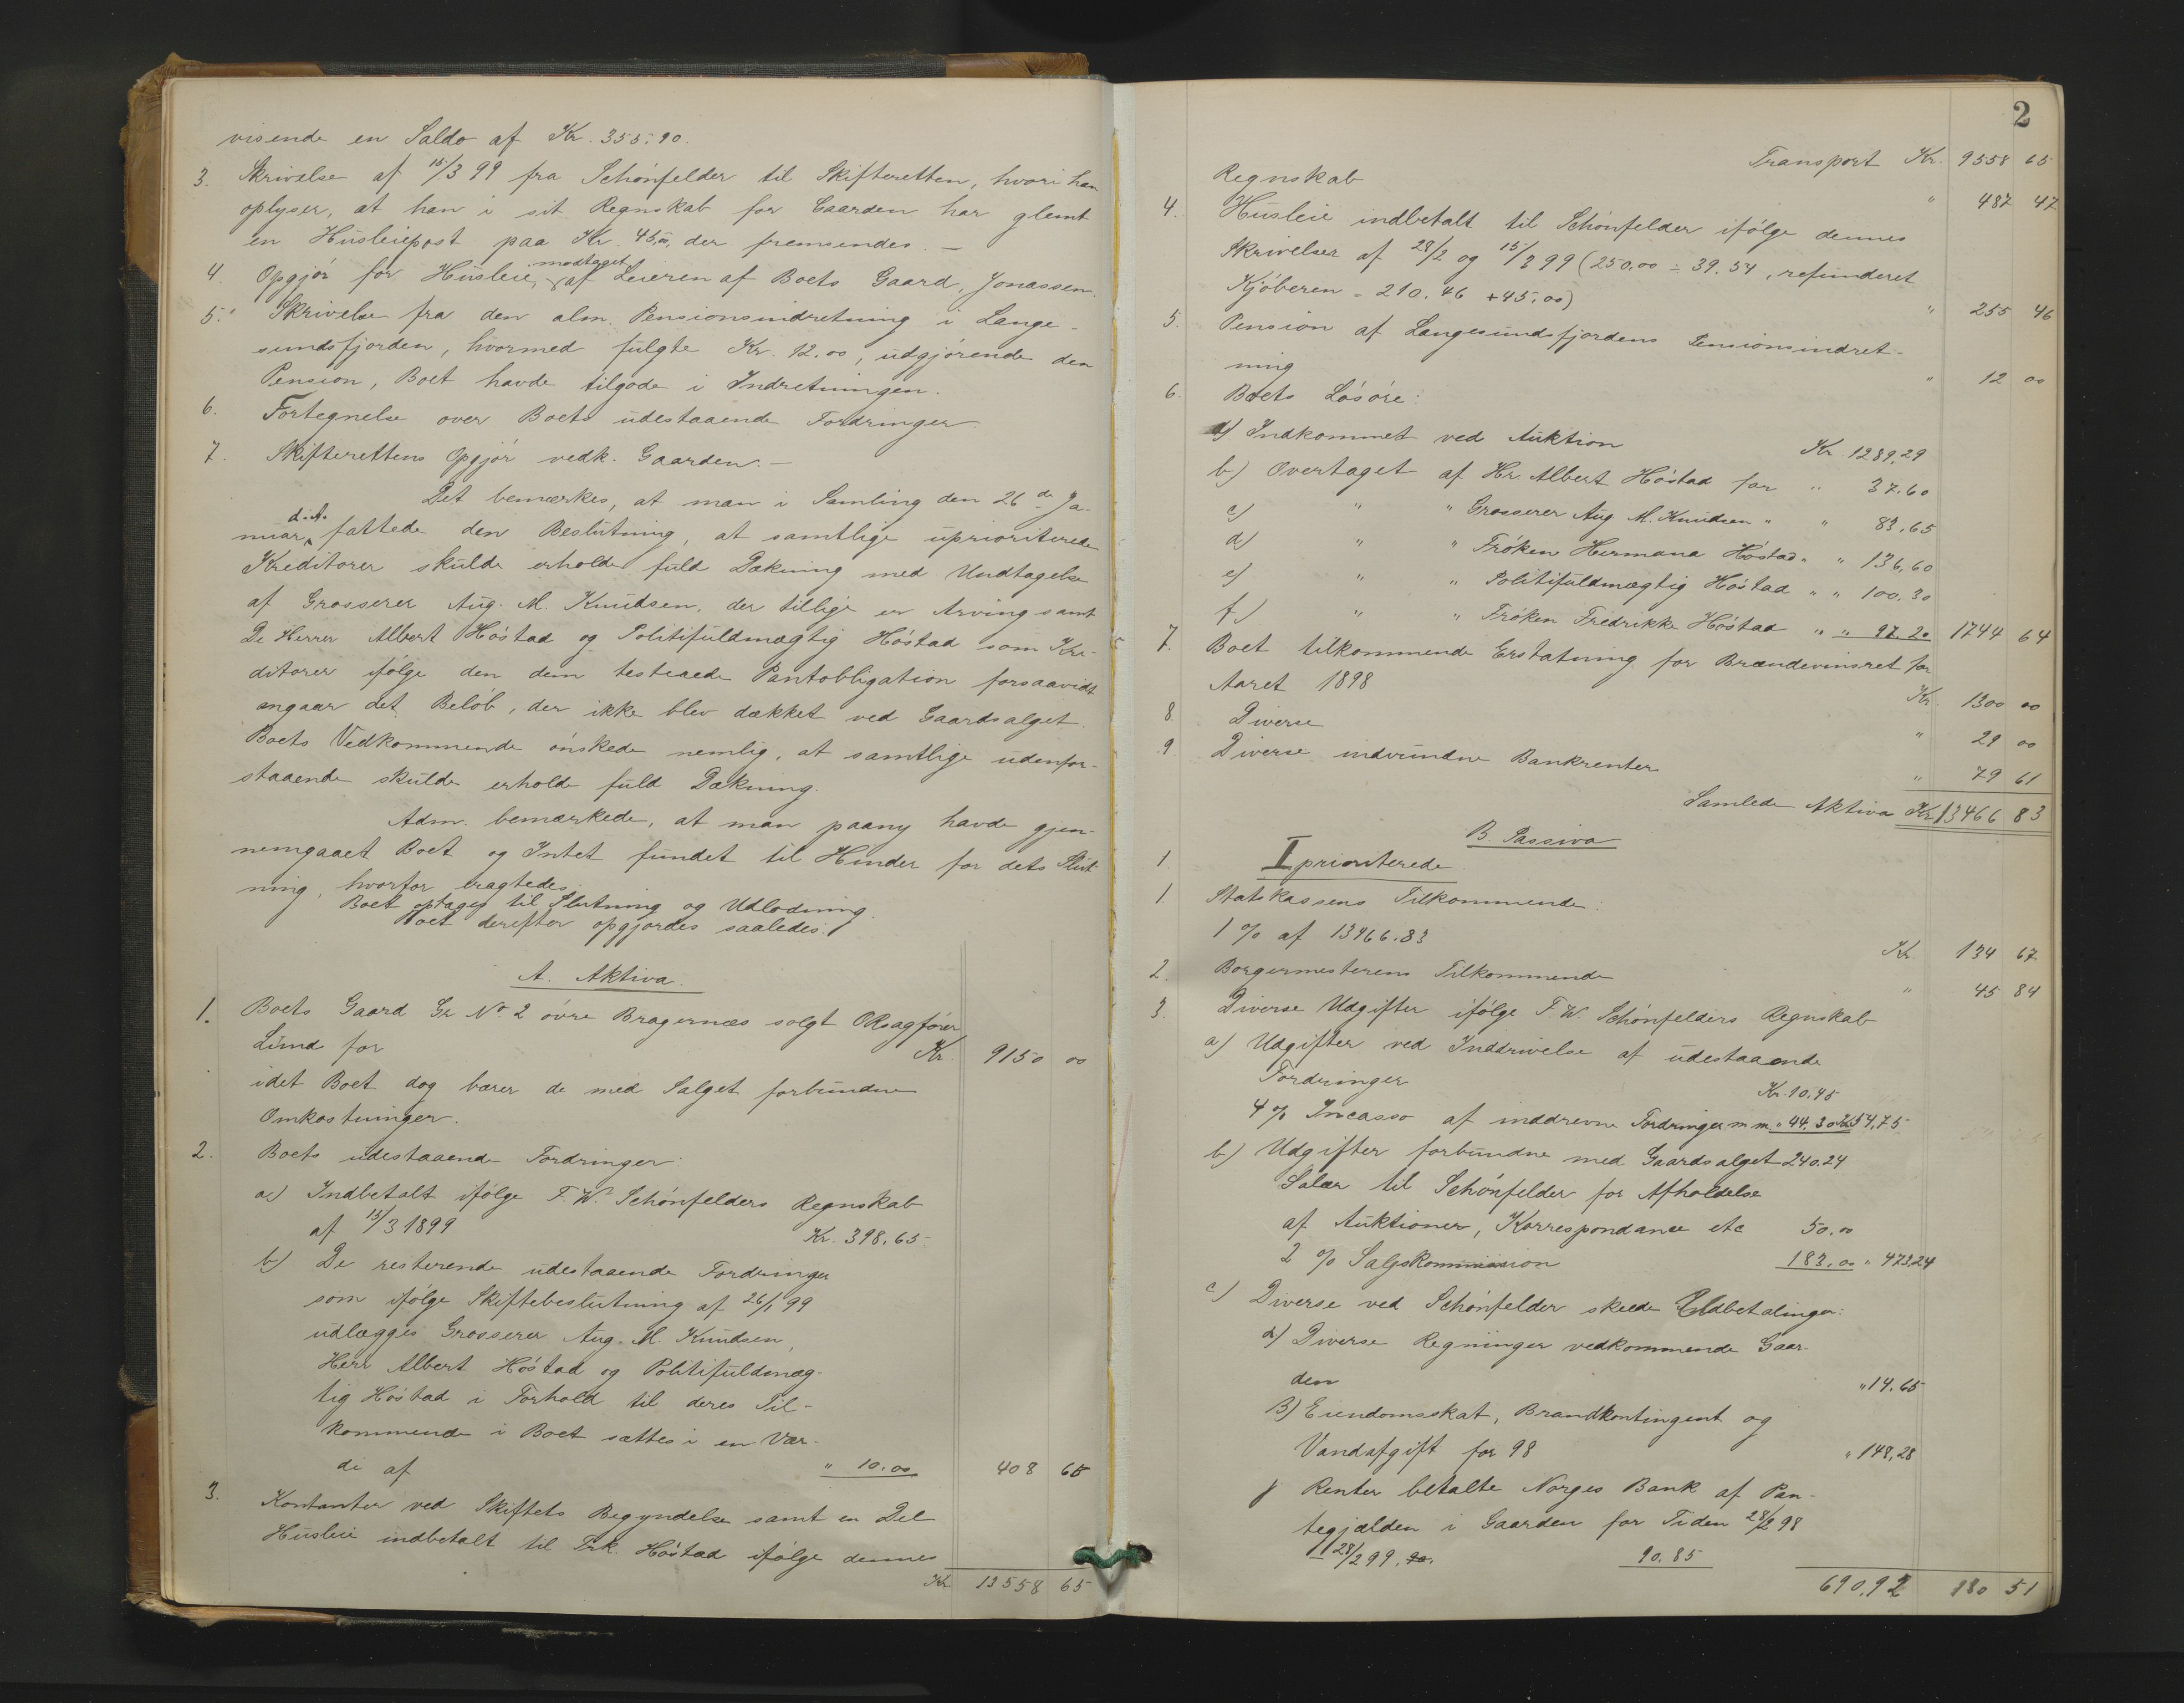 visende en Saldo af Kr. 355.90.
3. Skrivelse af 15/3 99 fra Schönfelder til Skifteretten, hvori han
oplyser, at han i sit Regnskab for Gaarden har glemt
en Husleiepost paa Kr. 45,00, der fremsendes. —
4. Opgjör for Husleie, modtaget af Leieren af Boets Gaard, Jonassen.
5. Skrivelse fra den alm. Pensionsindretning i Lange-
sundsfjorden, hvormed fulgte Kr. 12.00, udgjörende den
Pension, Boet havde tilgode i Indretningen.
6. Fortegnelse over Boets udestaaende Fordringer
7. Skifterettens Opgjör vedk. Gaarden. —
Det bemærkes, at man i Samling den 26de Ja-
nuar d.A. fattede den Beslutning, at samtlige uprioriterede
Kreditorer skulde erholde fuld Dækning med Undtagelse
af Grosserer Aug. M. Knudsen, der tillige er Arving samt
De Herrer Albert Höstad og Politifuldmægtig Höstad som Kre-
ditorer ifölge den dem testierede Pantobligation forsaavidt
angaar det Belöb, der ikke blev dækket ved Gaardsalget.
Boets Vedkommende önskede nemlig, at samtlige udenfor-
staaende skulde erholde fuld Dækning.
Adm. bemærkede, at man paany havde gjen-
nemgaaet Boet og Intet fundet til Hinder for dets Slut
ning, hvorfor eragtedes
Boet optages til Slutning og Udlodning.
Boet derefter opgjordes saaledes:
A. Aktiva.
1. Boets Gaard Gr No. 2 övre Bragernæs solgt ORsagförer
Lund for Kr. 9150 00
idet Boet dog bærer de med Salget forbundne
Omkostninger.
2. Boets udestaaende Fordringer:
a) Indbetalt ifölge F. W. Schönfelders Regnskab
af 15/3 1899 Kr. 398.65.
b) De resterende udestaaende Fordringer
som ifölge Skiftebeslutning af 26/1 99
udlægges Grosserer Aug. M. Knudsen,
Herr Albert Höstad og Politifuldmæg-
tig Höstad i Forhold til deres Til-
kommende i Boet sættes i en Vær-
di af " 10.00 408 65
3. Kontanter ved Skiftets Begyndelse samt en Del
Husleie indbetalt til Frk. Höstad ifölge dennes
Kr. 13558 65
2
Transport Kr. 9558 65
Regnskab " 487 47
4. Husleie indbetalt til Schönfelder ifölge dennes
Skrivelser af 28/2 og 15/3 99 (250.00 ÷ 39.54, refunderet
Kjöberen = 210.46 + 45.00) " 255 46
5. Pension af Langesundsfjordens Pensionsindret-
ning " 12 00
6. Boets Lösöre:
a) Indkommet ved Auktion Kr. 1289,29
b) Overtaget af Hr. Albert Höstad for " 37.60
c) " " Grosserer Aug M. Knudsen " " 83.65
d) " " Fröken Hermana Höstad " " 136.60
e) " " Politifuldmægtig Höstad " " 100.30
f) " " Fröken Fredrikke Höstad " " 97.20 1744 64
7. Boet tilkommende Erstatning for Brændevinsret for
Aaret 1898 Kr. 1300 00
8 Diverse " 29 00
9. Diverse indvundne Bankrenter " 79 61
Samlede Aktiva Kr. 13466 83
B. Passiva
1. I prioriterede.
1 Statskassens Tilkommende:
1 % af 13466.83 Kr. 134 67
2. Borgermesterens Tilkommende " 45 84
3. Diverse Udgifter ifölge F. W. Schönfelders Regnskab
a) Udgifter ved Inddrivelse af udestaaende
Fordringer Kr. 10.45
4 % Incasso af inddrevne Fordringer m. m. " 44.30 Kr. 54,75
b) Udgifter forbundne med Gaardsalget 240.24
Salær til Schönfelder for Afholdelse
af Auktioner, Korrespondance etc 50.00
2 % Salgskommission 183.00 " 473.24
c) Diverse ved Schönfelder skeede Udbetalinger:
α) Diverse Regninger vedkommende Gaar-
den " 14.65
β) Eiendomsskat, Brandkontingent og
Vandafgift for 98 " 148,28
γ Renter betalte Norges Bank af Pan-
tegjælden i Gaarden for Tiden 28/2 98
28/2 99. 90.85
690.92 180 51